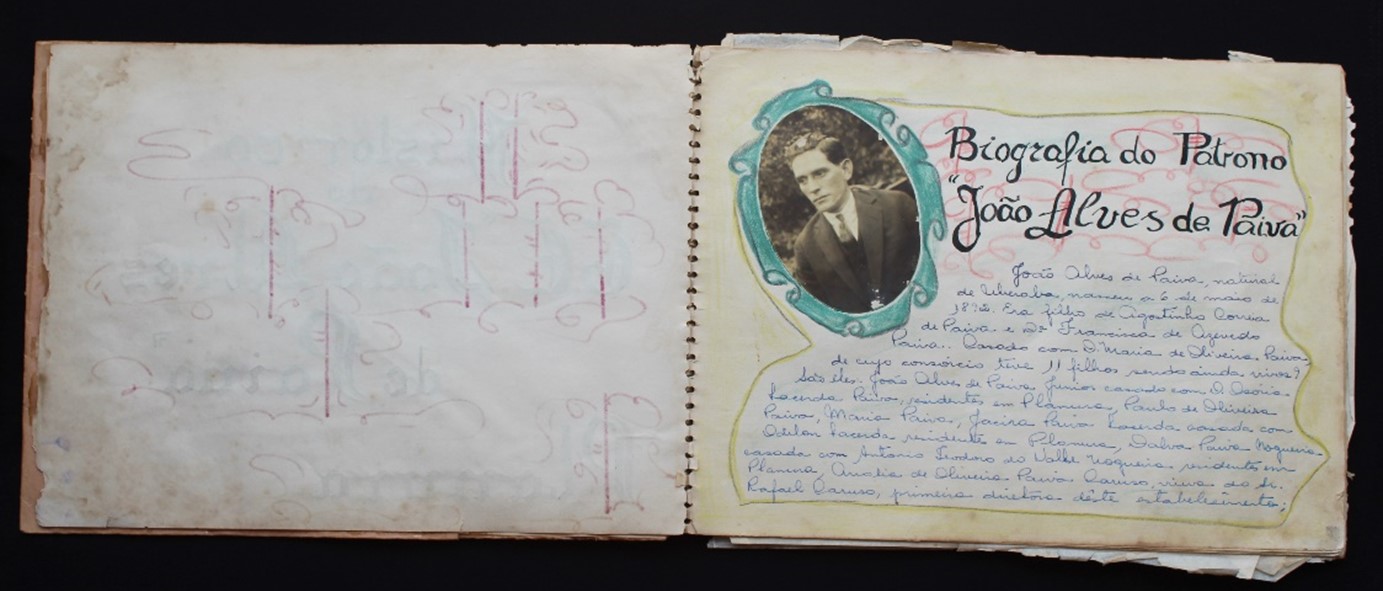 Biografia do Patrono
"João Alves de Paiva"
João Alves de Paiva, natural
de Uberaba, nasceu a 6 de maio de
Era filho de Agostinho Correa
de Paiva e Dª Francisca de Azevedo
Paiva.. Casado com D. Maria de Oliveira Paiva
de cujo consórcio teve 11 filhos sendo ainda vivos 9
São eles: João Alves de Paiva Junior casado com D.
Lacerda Paiva, residentes em Planura, Paulo de Oliveira
Paiva, Maria Paiva, Jacira Paiva Lacerda casada com
Lacerda residentes em Planura, Dalva Paiva Nogueira
casada com Antonio Teodoro do Valle Nogueira residentes em
Planura, Amatia de Oliveira Paiva Caruso, viuva do Sr.
Rafael Caruso, primeira diretora dêste estabelecimento;